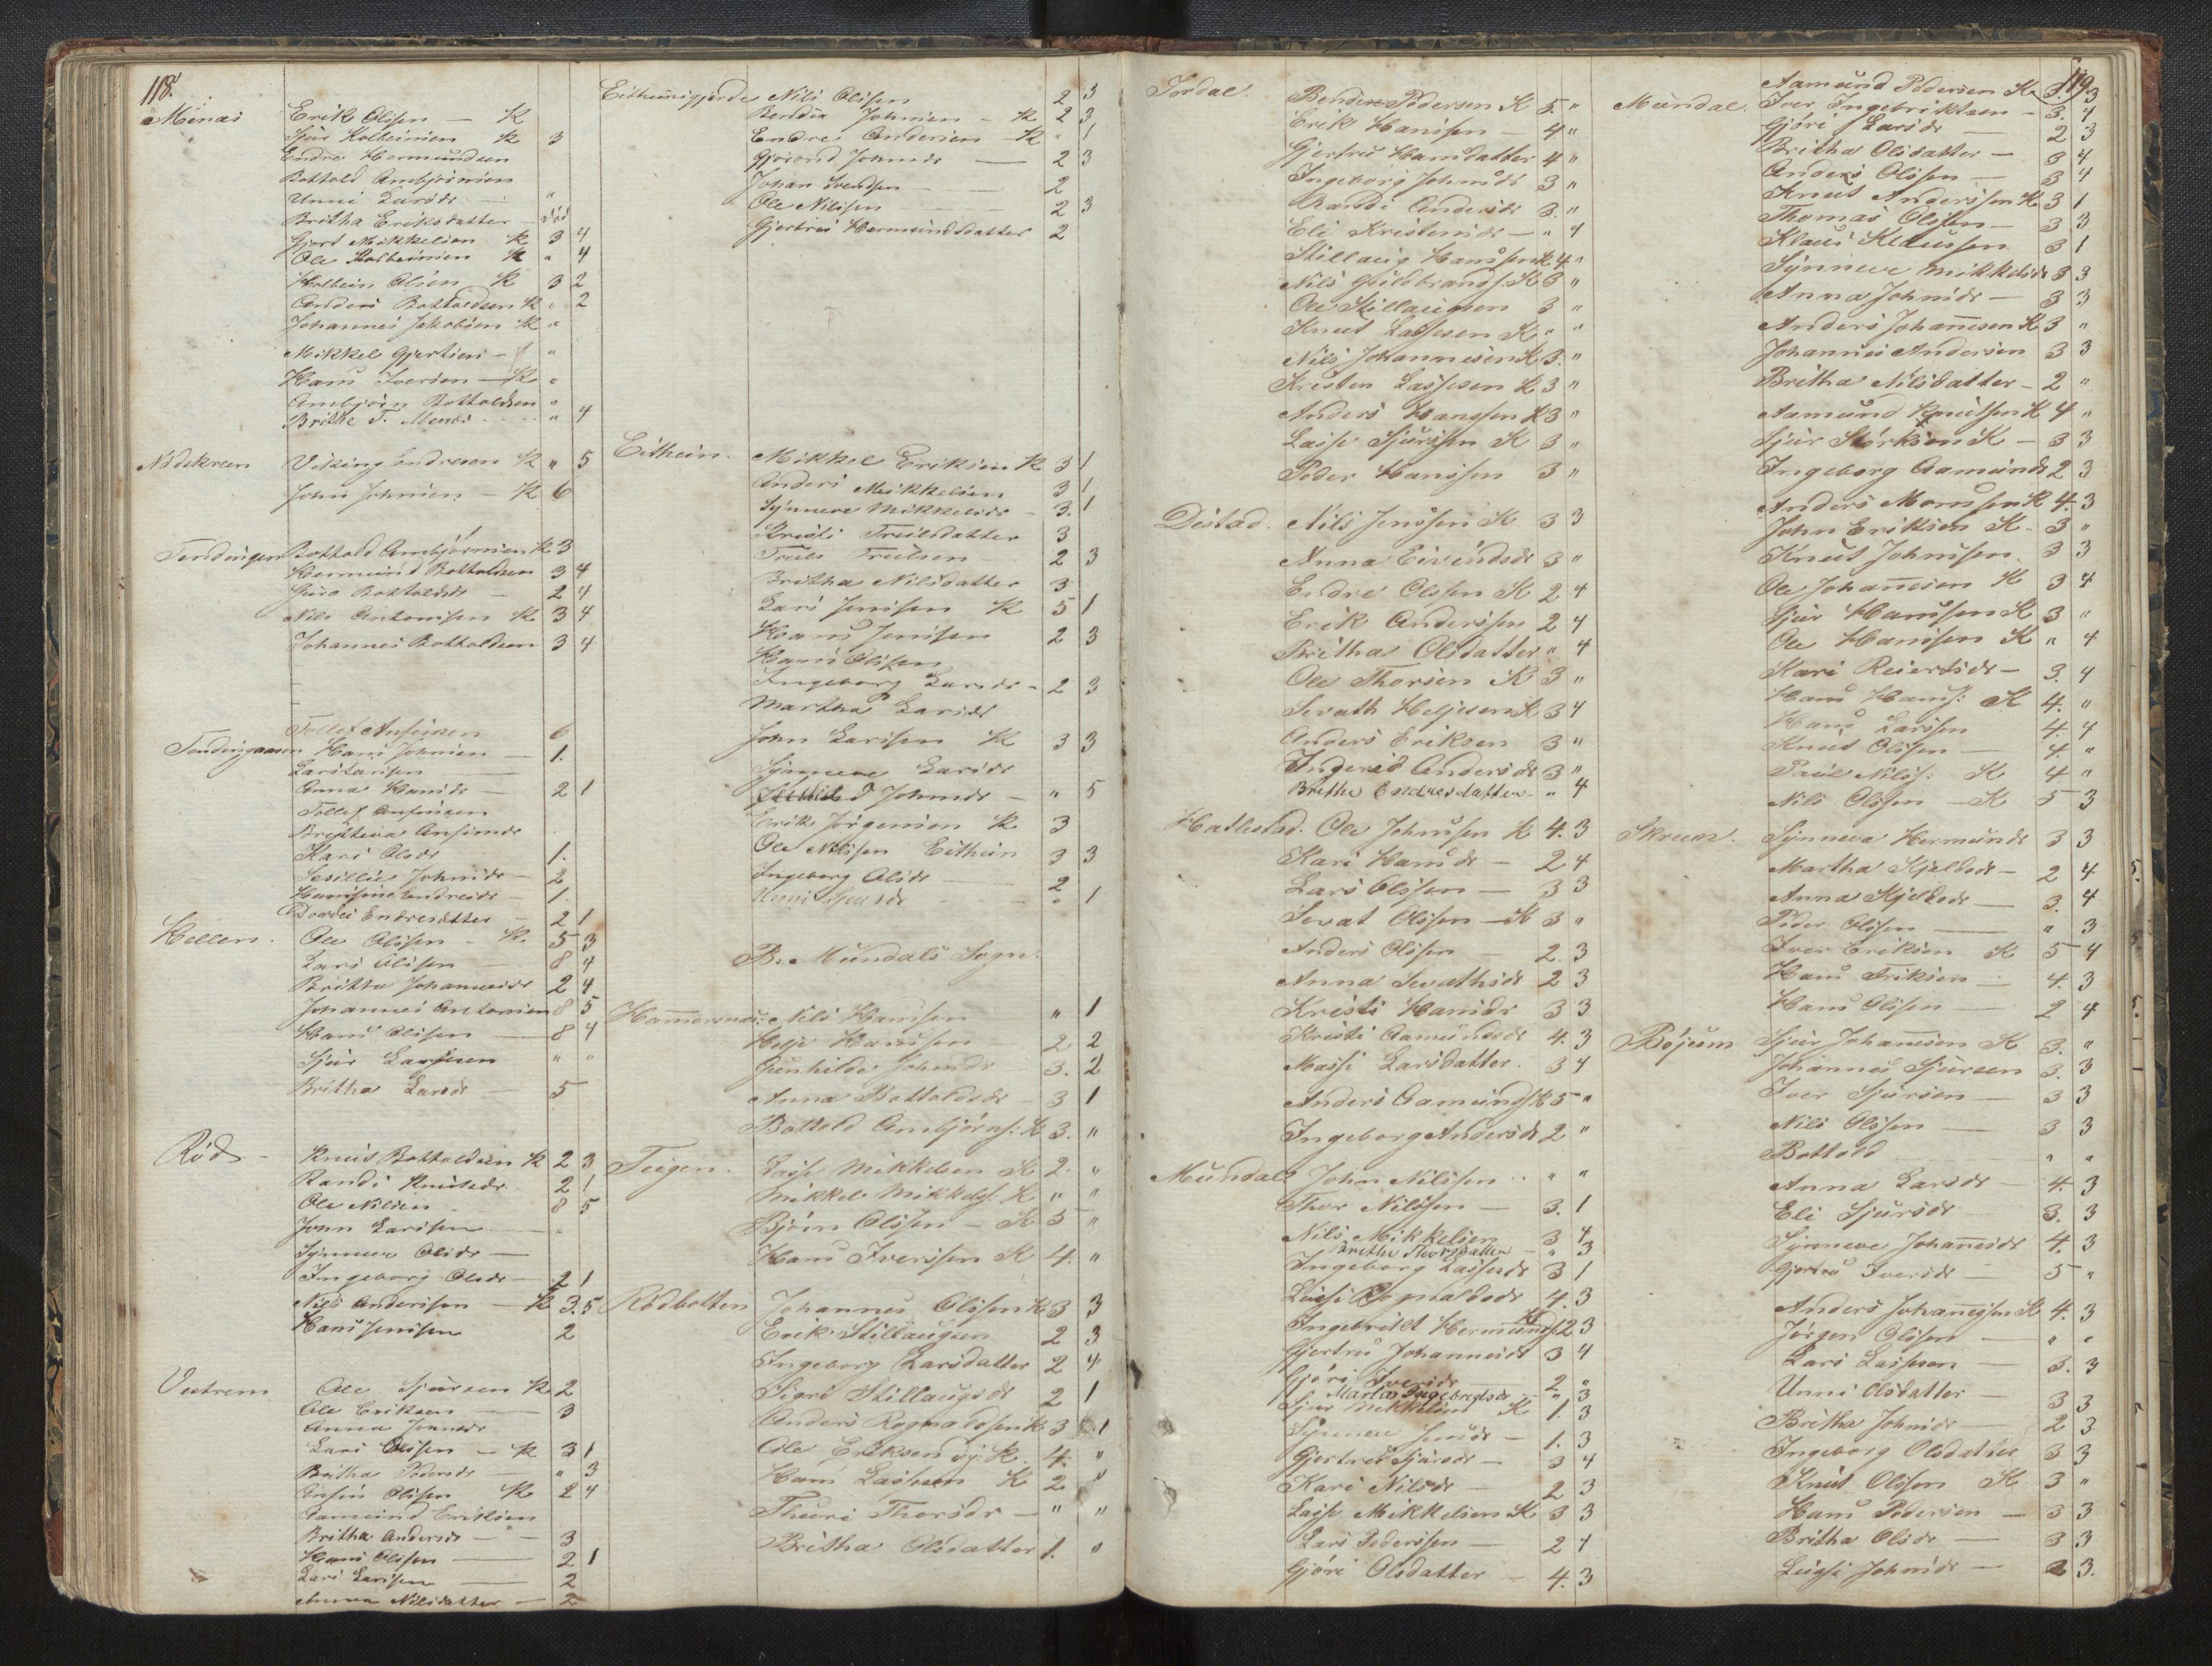 118.
Menæs Erik Olssen — K
Sjur Kolbeinsen K 3
Endre Hermundsen
Bottold Ambjørnsen
Unni Larsdr — "
Britha Eriksdatter — død
Gjert Mikkelsen K 3 4
Ole Kolbeinsen K " 4
Kolbein Olsen K 3 2
Anders Bottoldsen K " 2
Johannes Jakobsen K "
Mikkel Gjertsen — "
Hans Iversen — K "
Ambjørn Bottoldsen "
Brithe T. Menæs " 4
Nedskreen Viking Endresen K " 5
John Johnsen — K 6
Tenderigen Bottold Ambjørnsen K 3
Hermund Bottoldsen 3 4
Bottoldsdr — 2 4
Nils Antonisen K 3 4
Johannes Bottoldsen 3 4
Tollef Ansinsen 6
Hans Johnsen — 1.
Lars Larsen —
Anna Hansdr — 2 1
Tollef Ansinsen
Ansinsdr
Kari Olsdr 1.
Sesillie Johnsdr — 2
Endresdr — 1.
Endresdatter — 2 1
Hellen. Ole Olssen — K. 5 3
Lars Olssen — 8 4
Britha Johannesdr 2 4
Johannes Antonsen 8 5
Hans Olssen — 8 4
Sjur Lassesen " "
Britha Larsdr — 5
Rød — Knut Bottoldsen K 2 3
Randi Knutsdr 2 1
Ole Nilsen 8 5
John Larssen — "
Synneve Olsdr —
Ingeborg Olsdr — 2 1
Nils Anderssen — K 3. 5
Hans Jenssen 2
Vestrem Ole Sjursen K 2
Ole Eriksen — 3
Anna Johnsdr
Lars Olssen — K 3 1
Britha Pedersdr — " 3
Ansin Olssen K 2 4
Aamund Eriksen
Britha Andersdr — 3
Hans Olssen — 2 1
Lars Larssen — 2
Anna Nilsdatter — 2
Eitheimsgjerde Nils Olssen 2 3
Bendix Johnsen — K 2 3
Endre Andersen K " 1
Johnsdr — 2 3
Johan Svendsen — 2
Ole Nilssen — 2 3
Gjertrus Hermundsdatter 2
Eithein. Mikkel Eriksen K 3 1
Anders Mikkelsen 3 1
Synneve Mikkelsdr — 3. 1
Kristi Trulsdatter 3
Truls Trulsen 2 3
Britha Nilsdatter 3
Lars Jenssen K 5 1
Hans Jenssen 2 3
Hans Olssen
Ingeborg Larsdr — 2 3
Martha Larsdr
John Larssen K 3 3
Synneve Larsdr
Johnsdr — " 5
Erik Jørgensen K 3
Ole Nilssen Eithein 3 3
Ingeborg Olsdr — 2
Unni Sjursdr " 1
B. Mundals Sogn:
Hammersnæs: Nils Hanssen " 1
Helje Hanssen 2 2
Gunhilde Johnsdr 3. 2
Anna Bottoldsdr — 3 1
Bottold Ambjørns: K 3. "
Teigen. Lasse Mikkelsen K 2. "
Mikkel Mikkels: K " "
Bjørn Olssen — K 5 "
Hans Iverssen K 4. "
Rødbotten Johannes Olssen K 3 3
Erik Stillaugsen 2 3
Ingeborg Larsdatter 2 4
Sigri Stillaugsdr 2 1
Anders Rognaldsen K 3 1
Ole Eriksen K. 4. "
Hans Lassesen K 2 "
Thuri Thorsdr — " "
Britha Olsdatter 1. "
119.
Jordal. Bendix Pedersen K 5. "
Erik Hanssen — 4 "
Gjertru Hansdatter 4 "
Ingeborg Johnsdr 3 "
Randi Andersdr 3. "
Eli Kristensdr — " 4
Stillaug Hanssen K 4 "
Nils Guldbrands: K 3 "
Ole Stillaugsen 3 "
Knut Lassesen K " "
Nils Johannesen K 3. "
Kristen Lassesen K 3 "
Anders Hanssen K 3 "
Lasse Sjurssen K 3 "
Peder Hanssen 3 "
Distad. Nils Jenssen K 3 3
Anna Eivindsdr 3 "
Endre Olssen K 2 4
Erik Anderssen 2 4
Britha Olsdatter " 4
Ole Thorsen K 3 "
Sevath Heljesen K 3 4
Anders Eriksen 3 "
Ingerid Andersdr 3 "
Brithe Endresdatter " 4
Hatlestad. Ole Johnssen K 4. 3
Kari Hansdr — 2 4
Lars Olssen — 3 3
Sevat Olssen — K 3 "
Anders Olssen — 2. 3
Anna Sevathsdr 2 3
Kristi Hansdr 3 3
Kristi Aamundsdr 4. 3
Massi Larsdatter. 3 4
Anders Aamunds K 5 "
Ingeborg Andersdr 2 "
Mundal John Nilssen " "
Thor Nilssen — 3. 1
Nils Mikkelsen 3 4
Brithe Thorsdatter — " 3
Ingeborg Lassesdr 3 1
Rognaldsdr 4. 3
Ingebrikt Hermunds K 2 3
Gjertru Johannesdr 3 4
Gjøri Iversdr 2 "
Martha Ingebrigtsdr " 3
Sjur Mikkelsen K 1. 3
Synneve Jensdr — 1. 3
Gjertrud Sjursdr — 3 4
Kari Nilsdr — 2 3
Lasse Mikkelsen K 3 3
Lars Pederssen — 2 4
Gjøri Olsdatter — 4. 3
Aamund Pedersen K 3 3
Mundal. Iver Ingebriktsen — 3. 4
Gjøri Larsdr — 2 3
Britha Olsdatter — 3 4
Anders Olssen — 3 4
Knut Anderssen K 3 1
Thomas Olssen — 3 3
Klaus Klaussen 3 1
Synneve Mikkelsdr 3 3
Anna Johnsdr — 3 3
Anders Johanesen K 3 "
Johannes Andersen 3 3
Britha Nilsdatter — 2 "
Aamund Knutssen K 4 "
Sjur Størksen K — 3 3
Ingeborg Aamundsdr 2 3
Anders Monssen K 4. 3
John Eriksen K — 3 "
Knut Johnssen 3 3
Ole Johanesen K 3 4
Sjur Hanssen K 3 "
Ole Hanssen K " 4
Kari Reiersdr — 3. 4
Hans Hans: K 4. "
Hans Larssen 4. 4
Knut Olssen — 4. "
Paul Nils: K 4 "
Nils Olssen — K 5 3
Skreen. Synneva Hermundsdr 3 3
Martha Kjeldsdr — 2 4
Anna Kjeldsdr — 3. 4
Peder Olssen — " 3
Iver Eriksen K 5 4
Hans Eriksen — 4. 3
Hans Olssen — 2 4
Bøjum Sjur Johanesen K 3. "
Johannes Sjursen 3. 3
Iver Sjursen — 3 3
Nils Olssen — 3 3
Bottold " "
Anna Larsdr — 4. 3
Eli Sjursdr 3. 3
Synneve Johanesdr 4. 3
Gjertru Iversdr — 5 "
Anders Johanessen K 4. 3
Jørgen Olssen — " "
Lars Lassesen — 3. 3
Unni Olsdatter — 3 3
Britha Johnsdr — 2 3
Ingeborg Olsdatter 3 3
Knut Olssen K 3 "
Hans Pedersen — 3 3
Britha Olsdr — 3 3
Johnsdr — 2 3.